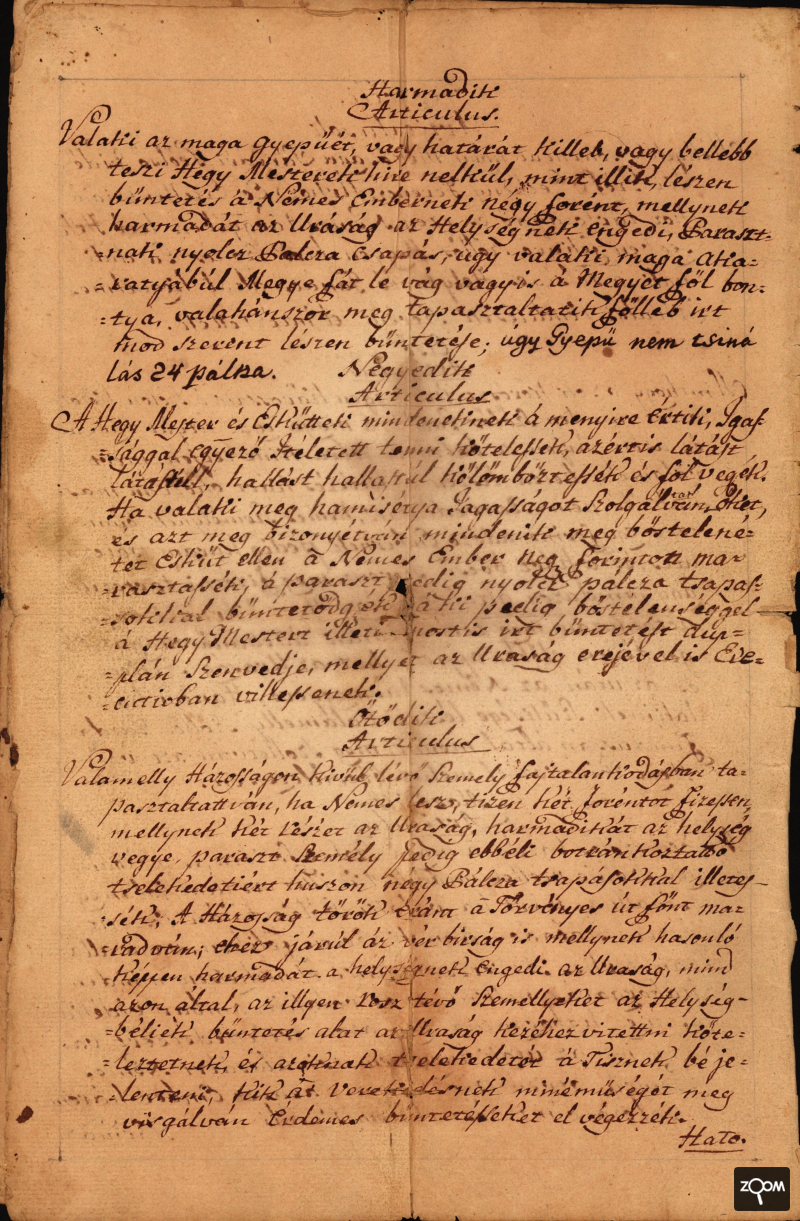 Harmadik
Articulus.
Valaki az maga gyepüét, vagy határát killeb, vagy bellebb
teszi Hegy Mesterek hire nelkül, mint illik, lészen
büntetés à Nemes Embernek négy forént, mellynek
harmadát az Uraság az Helységnek engedi, Paraszt-
-nak nyolcz Palcza csapás, ugy valaki maga aka-
-ratyábúl Megye fát le vág vagy is à Megyét föl bon-
-:tya, valahánszor meg tapasztaltatik följeb irt
mod szerent lészen büntetése; úgy Gyepü nem tsiná
lás 24 pálza. Negyedik
Articulus
A Hegy Mester és Esküttek mindenekinek á menyire értik, Igas-
-:sággal egyező Itéletett tenni kötelessek, azértis látást
látástúl, hallást hallastúl külömböztessék és föl vegék.
Ha valaki meg hamisétya Jagasságot szolgálván öket,
és azt meg bizonyétván mindenik meg böstelené-
-tet Esküt ellen à Nemes Ember neg forintott ma-
-rasztassék, á paraszt pedig nyolcz pálcza tsapas-
-sokkal büntetödgyék á ki pedig böstelenséggel
á Hegy Mestert illeti mostis irt büntetést dup-
-:plán szenvedje, mellyet az Uraság erejével is Exe-
-:cutioban villessenek.
Ötödik
Articulus
Valamelly Házosságon kivül lévö személy fajtalankodásban ta-
pasztaltattván, ha Nemes lesz, tizen két foréntot fizessen,
mellynek két részét az Uraság, harmadikát az helység
vegye, paraszt személy pedig ebbéli botránkoztató
tselekedetiért huszon négy Pálcza tsapásokkal illetes-
-:sék; A Házosság török eránt à Törvényes út fönt ma-
-:radván; ehez járúl áz vér birság is mellynek hasonló
képpen harmadát a helységnek engedi az Uraság, mind
azon által, az illyen rosz tévö személlyeket az Helység-
-:béliek büntetés alat az Uraság kezéhez vitettni köte-
-:leztetnek, és azoknak tselekedetét à Tisznek bé je-
-:lenteni, kik áz verekedésnek minéműségét meg
visgálván érdemes büntetésseket el végezzék.
Hato.
ZOOM